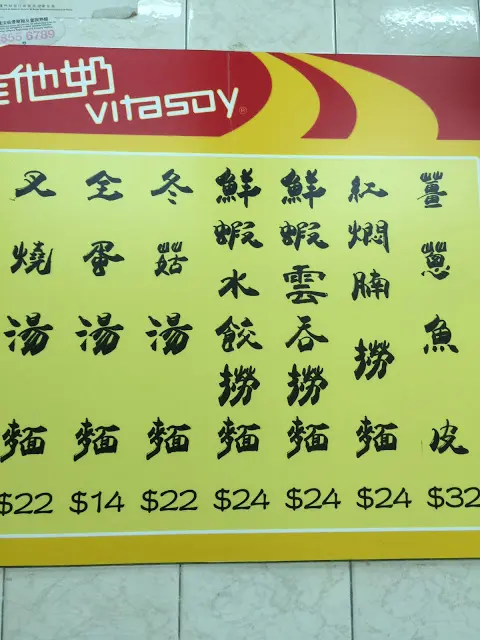 855 6789
他奶
vitasoy®
薑蔥魚皮
$32
紅燜腩撈麵
$24
鮮蝦雲吞撈麵
$24
鮮蝦水餃撈麵
$24
冬菇湯麵
$22
全蛋湯麵
$14
叉燒湯麵
$22